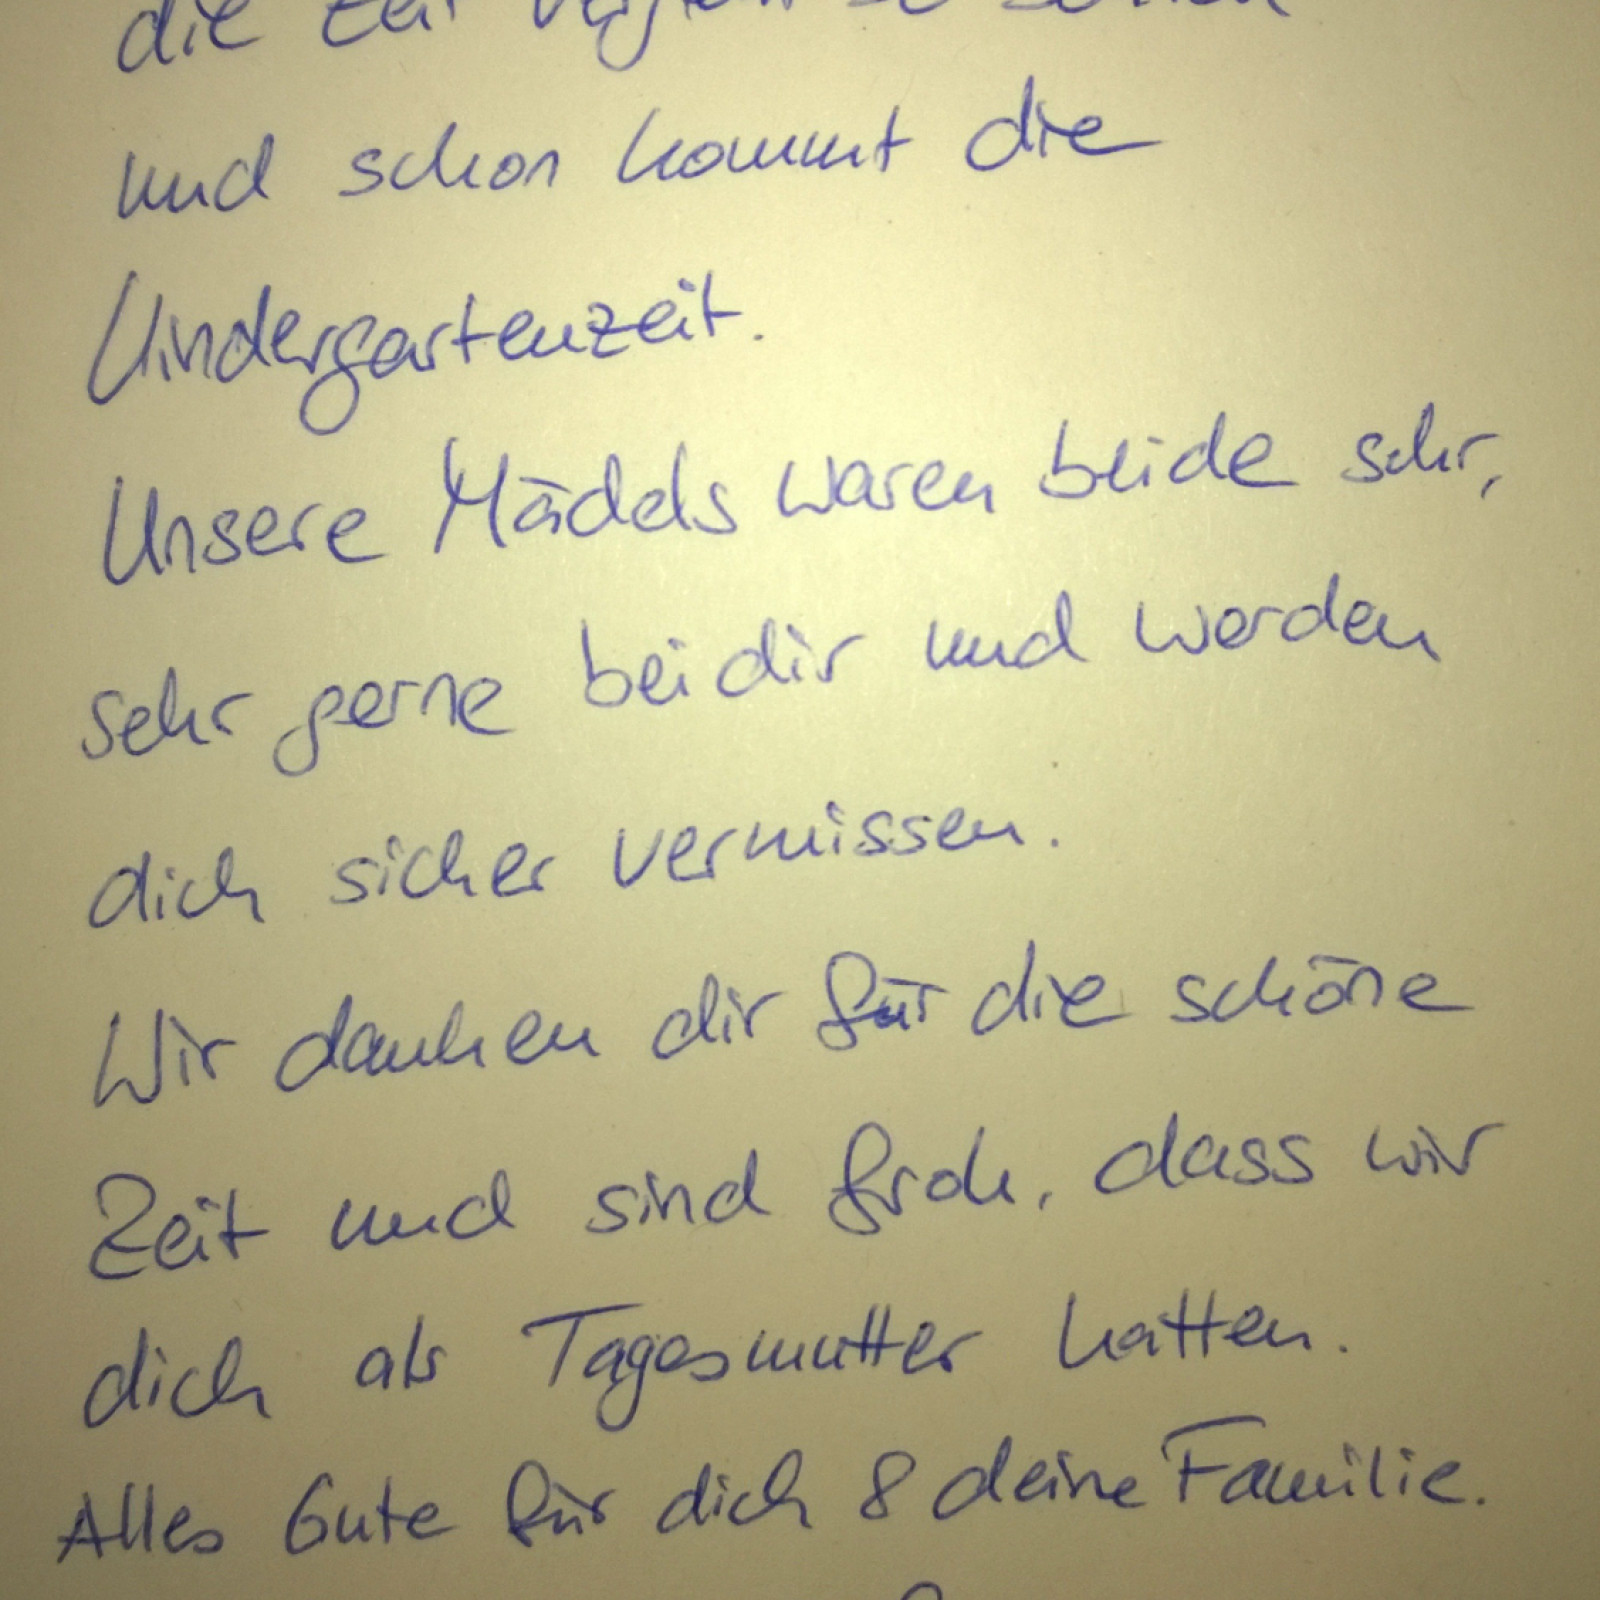 die Zeit vergeht so schnell
und schon kommt die
Kindergartenzeit.
Unsere Mädels waren beide sehr,
sehr gerne bei dir und werden
dich sicher vermissen.
Wir danken dir für die schöne
Zeit und sind froh, dass wir
dich als Tagesmutter hatten.
Alles Gute für dich & deine Familie.